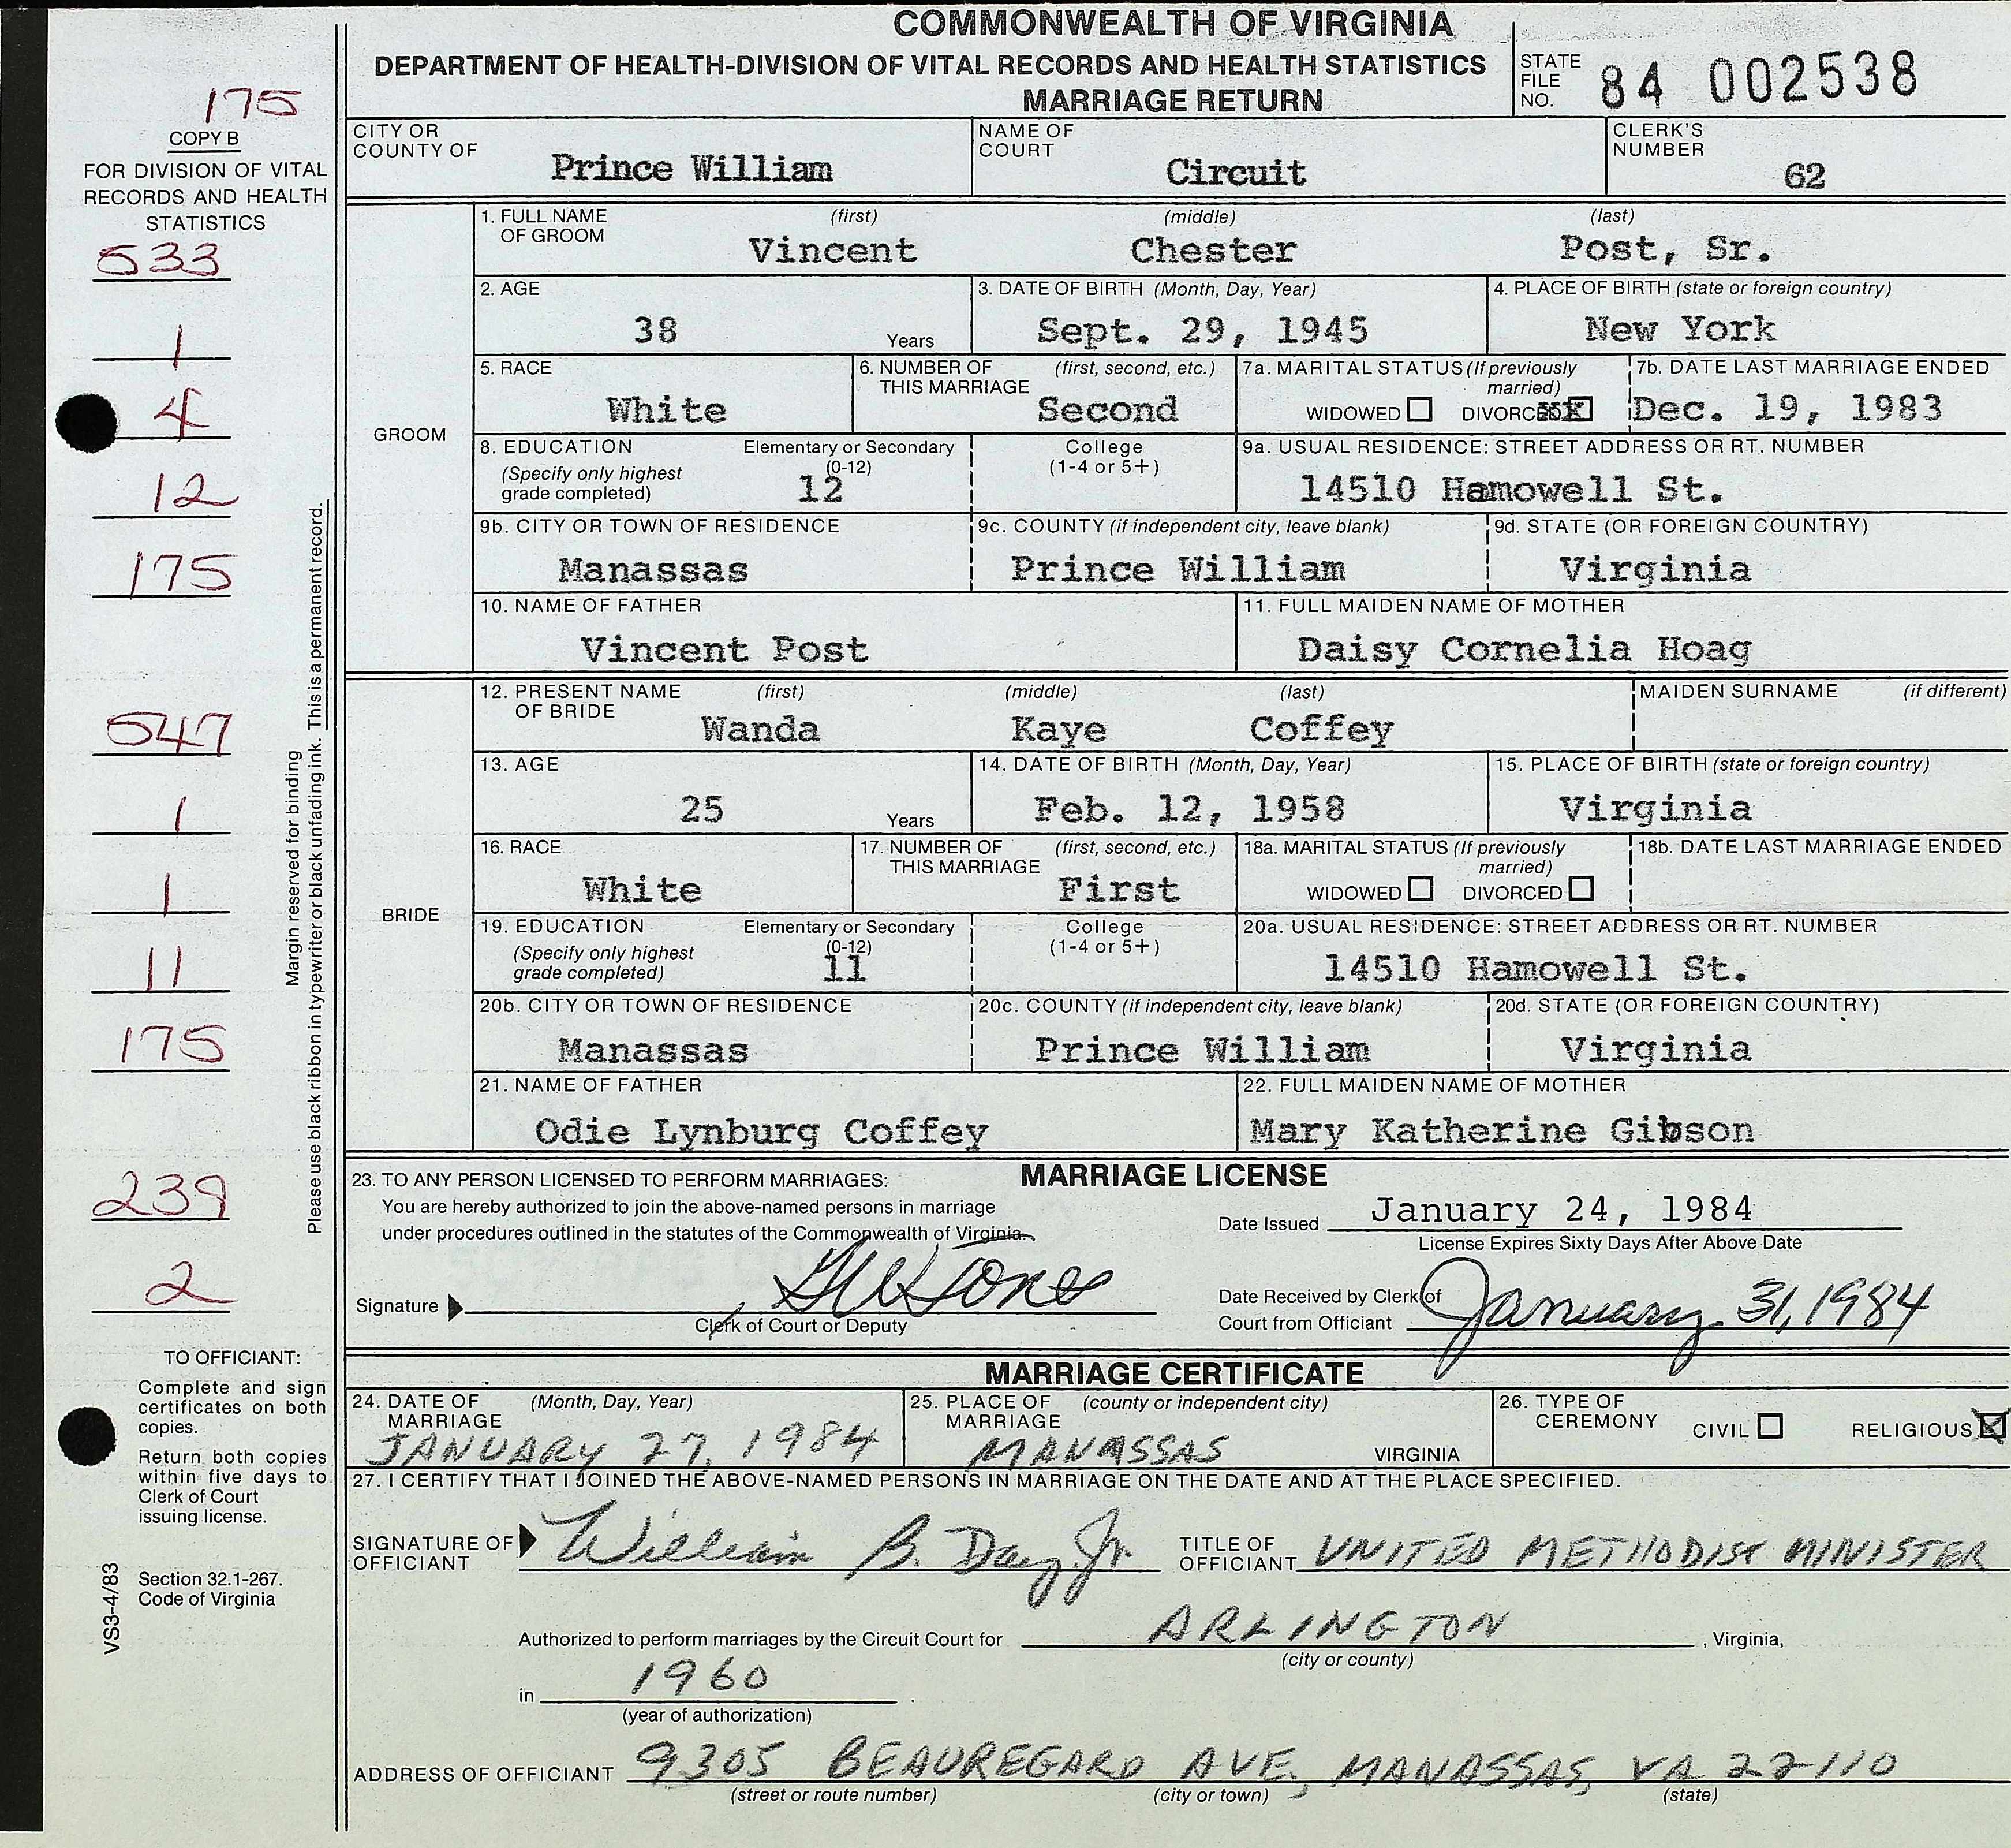 COMMONWEALTH OF VIRGINIA
DEPARTMENT OF HEALTH-DIVISION OF VITAL RECORDS AND HEALTH STATISTICS
MARRIAGE RETURN
STATE FILE NO. 84 002538
175
COPY B
FOR DIVISION OF VITAL
RECORDS AND HEALTH
STATISTICS
533
1
4
12
175
547
1
1
11
175
239
2
Margin reserved for binding
Please use black ribbon in typewriter or black unfading ink. This is a permanent record.
TO OFFICIANT:
Complete and sign
certificates on both
copies.
Return both copies
within five days to
Clerk of Court
issuing license.
Section 32.1-267.
Code of Virginia
VS3-4/83
CITY OR COUNTY OF Prince William
NAME OF COURT Circuit
CLERK'S NUMBER 62
GROOM
1. FULL NAME OF GROOM (first) Vincent (middle) Chester (last) Post, Sr.
2. AGE 38 Years
3. DATE OF BIRTH (Month, Day, Year) Sept. 29, 1945
4. PLACE OF BIRTH (state or foreign country) New York
5. RACE White
6. NUMBER OF THIS MARRIAGE (first, second, etc.) Second
7a. MARITAL STATUS (If previously married) WIDOWED DIVORCED xx
7b. DATE LAST MARRIAGE ENDED Dec. 19, 1983
8. EDUCATION (Specify only highest grade completed) Elementary or Secondary (0-12) 12
College (1-4 or 5+)
9a. USUAL RESIDENCE: STREET ADDRESS OR RT. NUMBER 14510 Hamowell St.
9b. CITY OR TOWN OF RESIDENCE Manassas
9c. COUNTY (if independent city, leave blank) Prince William
9d. STATE (OR FOREIGN COUNTRY) Virginia
10. NAME OF FATHER Vincent Post
11. FULL MAIDEN NAME OF MOTHER Daisy Cornelia Hoag
BRIDE
12. PRESENT NAME OF BRIDE (first) Wanda (middle) Kaye (last) Coffey
MAIDEN SURNAME (if different)
13. AGE 25 Years
14. DATE OF BIRTH (Month, Day, Year) Feb. 12, 1958
15. PLACE OF BIRTH (state or foreign country) Virginia
16. RACE White
17. NUMBER OF THIS MARRIAGE (first, second, etc.) First
18a. MARITAL STATUS (If previously married) WIDOWED DIVORCED
18b. DATE LAST MARRIAGE ENDED
19. EDUCATION (Specify only highest grade completed) Elementary or Secondary (0-12) 11
College (1-4 or 5+)
20a. USUAL RESIDENCE: STREET ADDRESS OR RT. NUMBER 14510 Hamowell St.
20b. CITY OR TOWN OF RESIDENCE Manassas
20c. COUNTY (if independent city, leave blank) Prince William
20d. STATE (OR FOREIGN COUNTRY) Virginia
21. NAME OF FATHER Odie Lynburg Coffey
22. FULL MAIDEN NAME OF MOTHER Mary Katherine Gibson
MARRIAGE LICENSE
23. TO ANY PERSON LICENSED TO PERFORM MARRIAGES:
You are hereby authorized to join the above-named persons in marriage
under procedures outlined in the statutes of the Commonwealth of Virginia.
Date Issued January 24, 1984
License Expires Sixty Days After Above Date
Signature
Clerk of Court or Deputy
Date Received by Clerk of
Court from Officiant January 31, 1984
MARRIAGE CERTIFICATE
24. DATE OF MARRIAGE (Month, Day, Year) JANUARY 27, 1984
25. PLACE OF MARRIAGE (county or independent city) MANASSAS VIRGINIA
26. TYPE OF CEREMONY CIVIL RELIGIOUS
27. I CERTIFY THAT I JOINED THE ABOVE-NAMED PERSONS IN MARRIAGE ON THE DATE AND AT THE PLACE SPECIFIED.
SIGNATURE OF OFFICIANT William B. Day, Jr.
TITLE OF OFFICIANT UNITED METHODIST MINISTER
Authorized to perform marriages by the Circuit Court for ARLINGTON, Virginia,
(city or county)
in 1960
(year of authorization)
ADDRESS OF OFFICIANT 9305 BEAUREGARD AVE, MANASSAS, VA 22110
(street or route number) (city or town) (state)